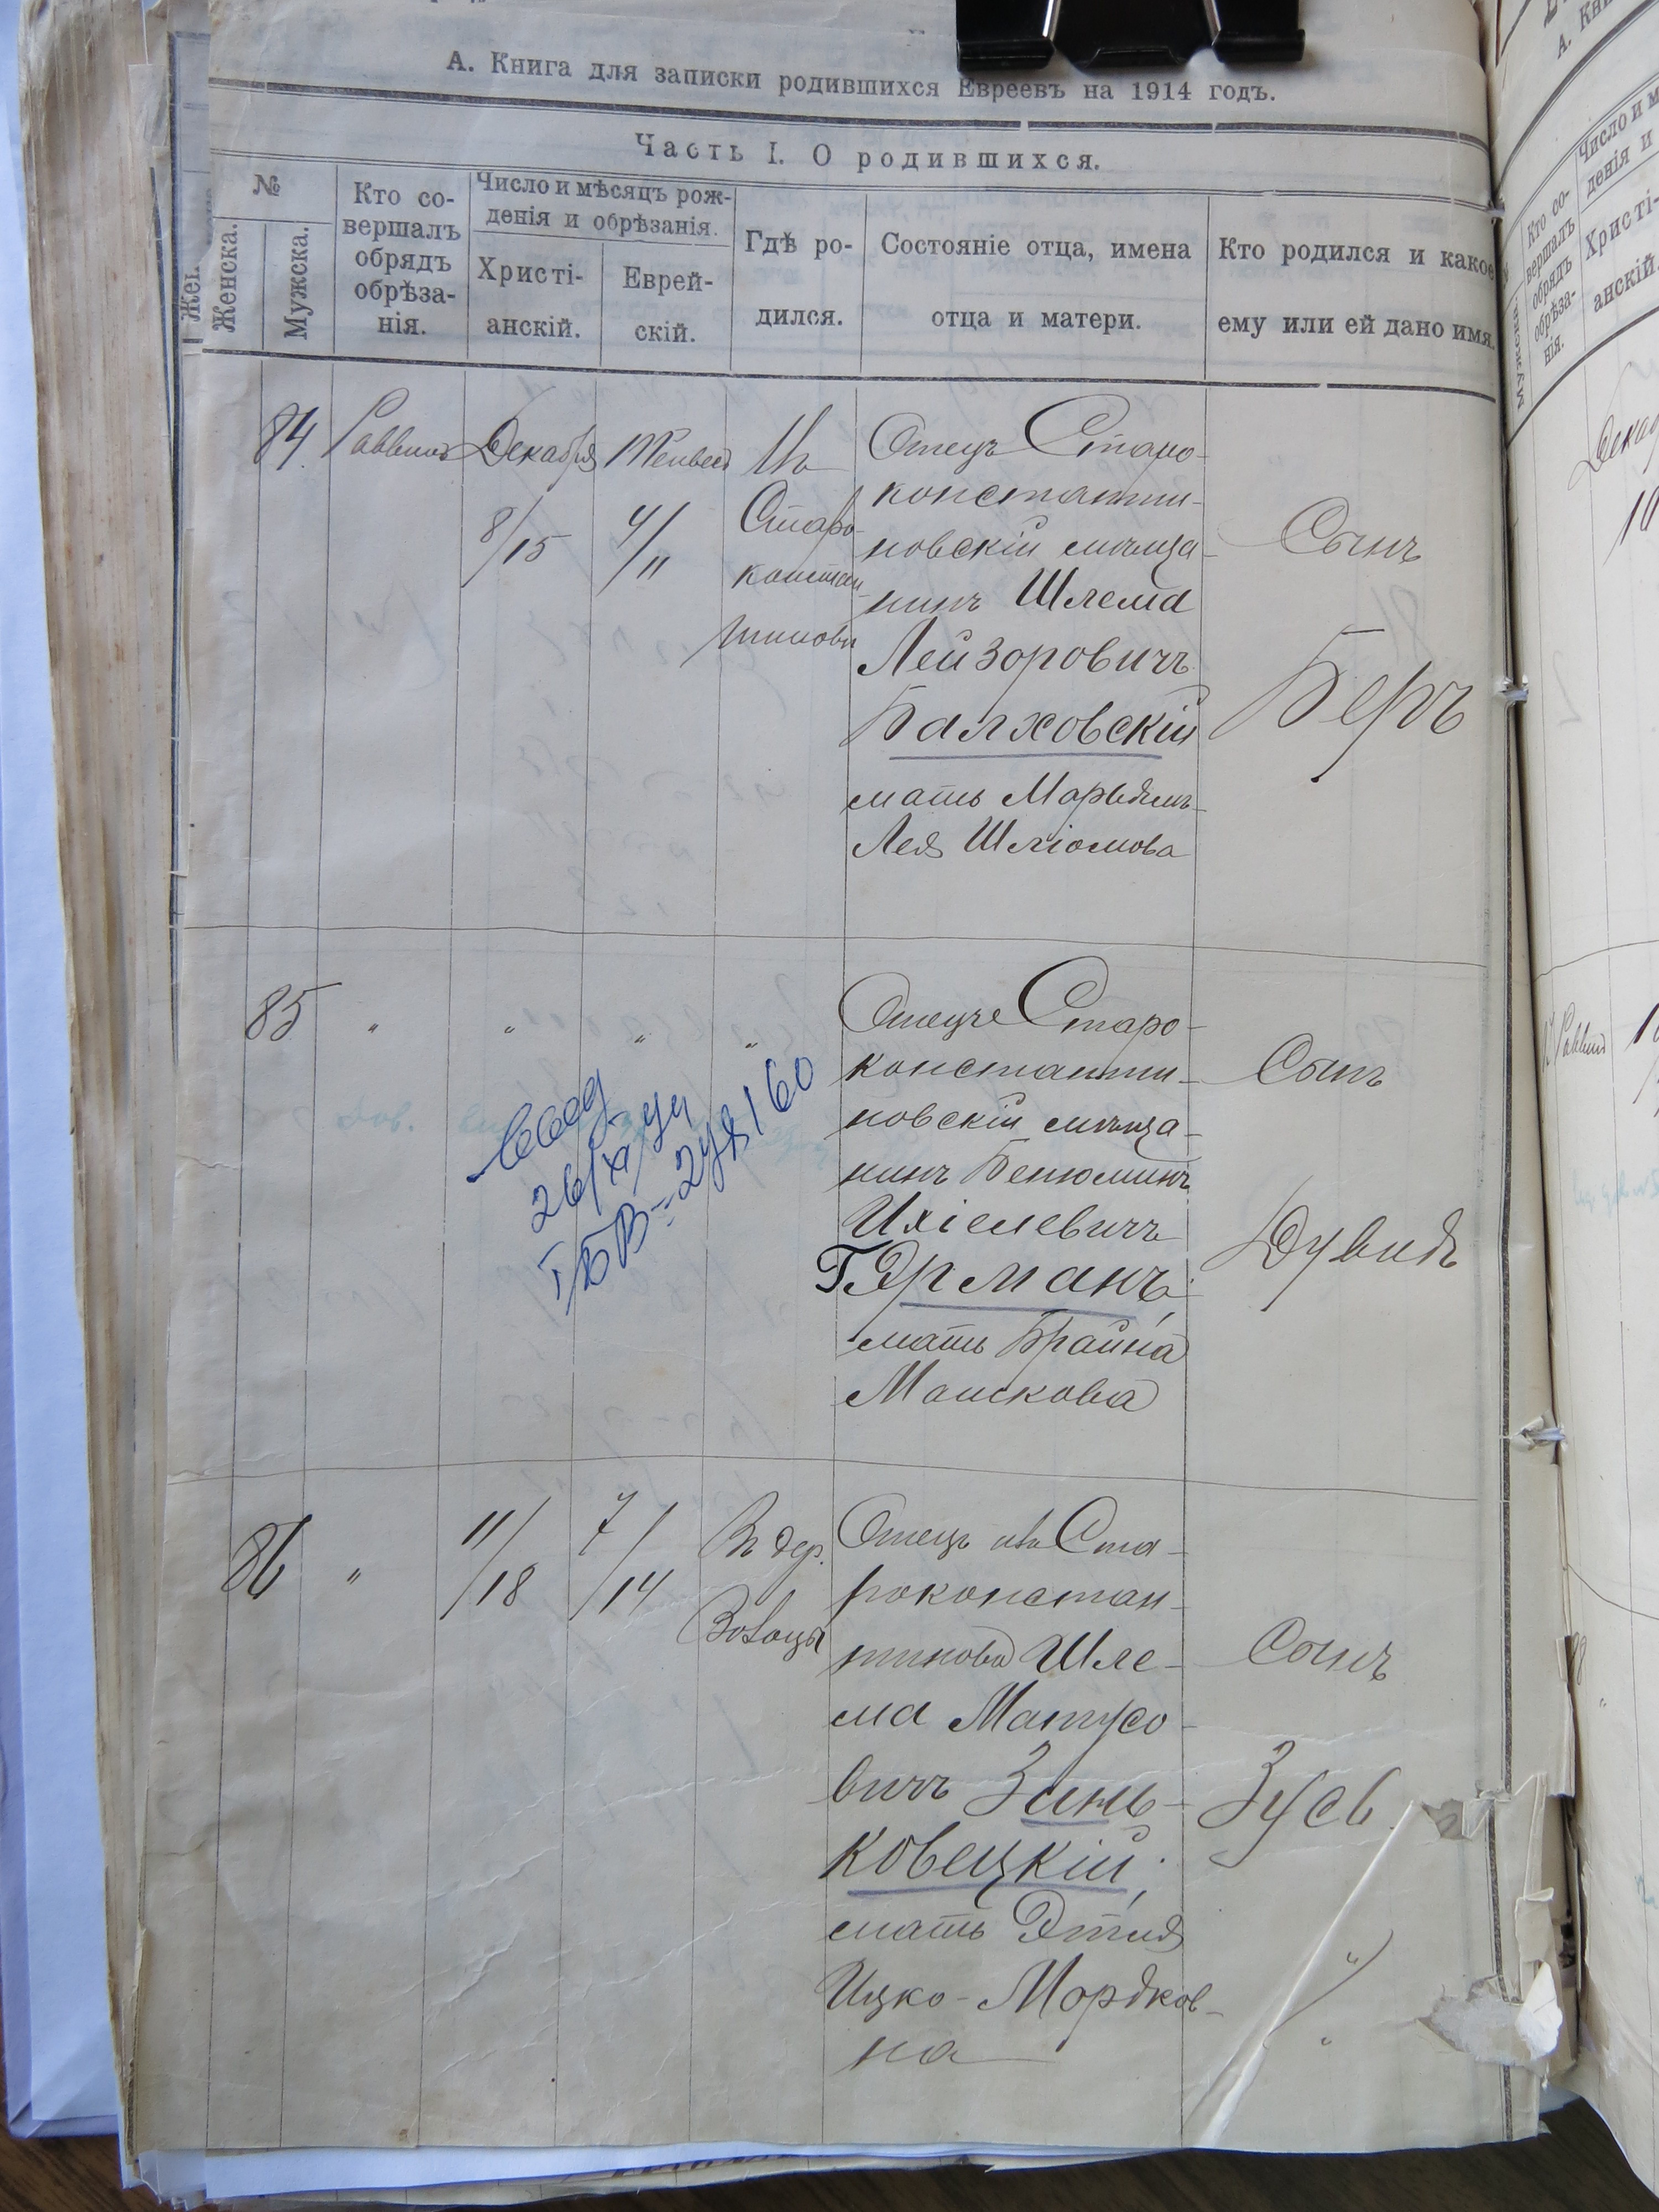 А. Книга для записки родившихся Евреевъ на 1914 годъ.
Часть I. О родившихся.
№
Женска.
Мужска.
Кто со-
вершалъ
обрядъ
обрѣза-
нія.
Число и мѣсяцъ рож-
денія и обрѣзанія.
Христі-
анскій.
Еврей-
скій.
Гдѣ ро-
дился.
Состояніе отца, имена
отца и матери.
Кто родился и какое
ему или ей дано имя.
84
Раввинъ
Декабря
8/15
Тейвесъ
4/11
Въ
Старо-
констан-
тиновѣ
Отецъ Старо-
константи-
новскій мѣща-
нинъ Шлема
Лейзоровичъ
Балховскій
мать Марьямъ-
Лея Шліомова
Сынъ
Беръ
85
"
"
"
"
Отецъ Старо-
константи-
новскій мѣща-
нинъ Бенюминъ
Ихіелевичъ
Гэрманъ,
мать Брайна
Машкова
Сынъ
Дувидъ
26/XI
86
"
11/18
7/14
Въ дер.
Отецъ изъ Ста-
роконстан-
тинова Шле-
ма Матусо-
вичъ Зинь-
ковецкій,
мать Этля
Ицко-Мордков-
на
Сынъ
Зусь
Жен
А. Кни
Число и м
денія и
Кто со-
вершалъ
обрядъ
обрѣза-
нія.
Христі-
анскій.
Мужска
Декаб
10
Раввинъ